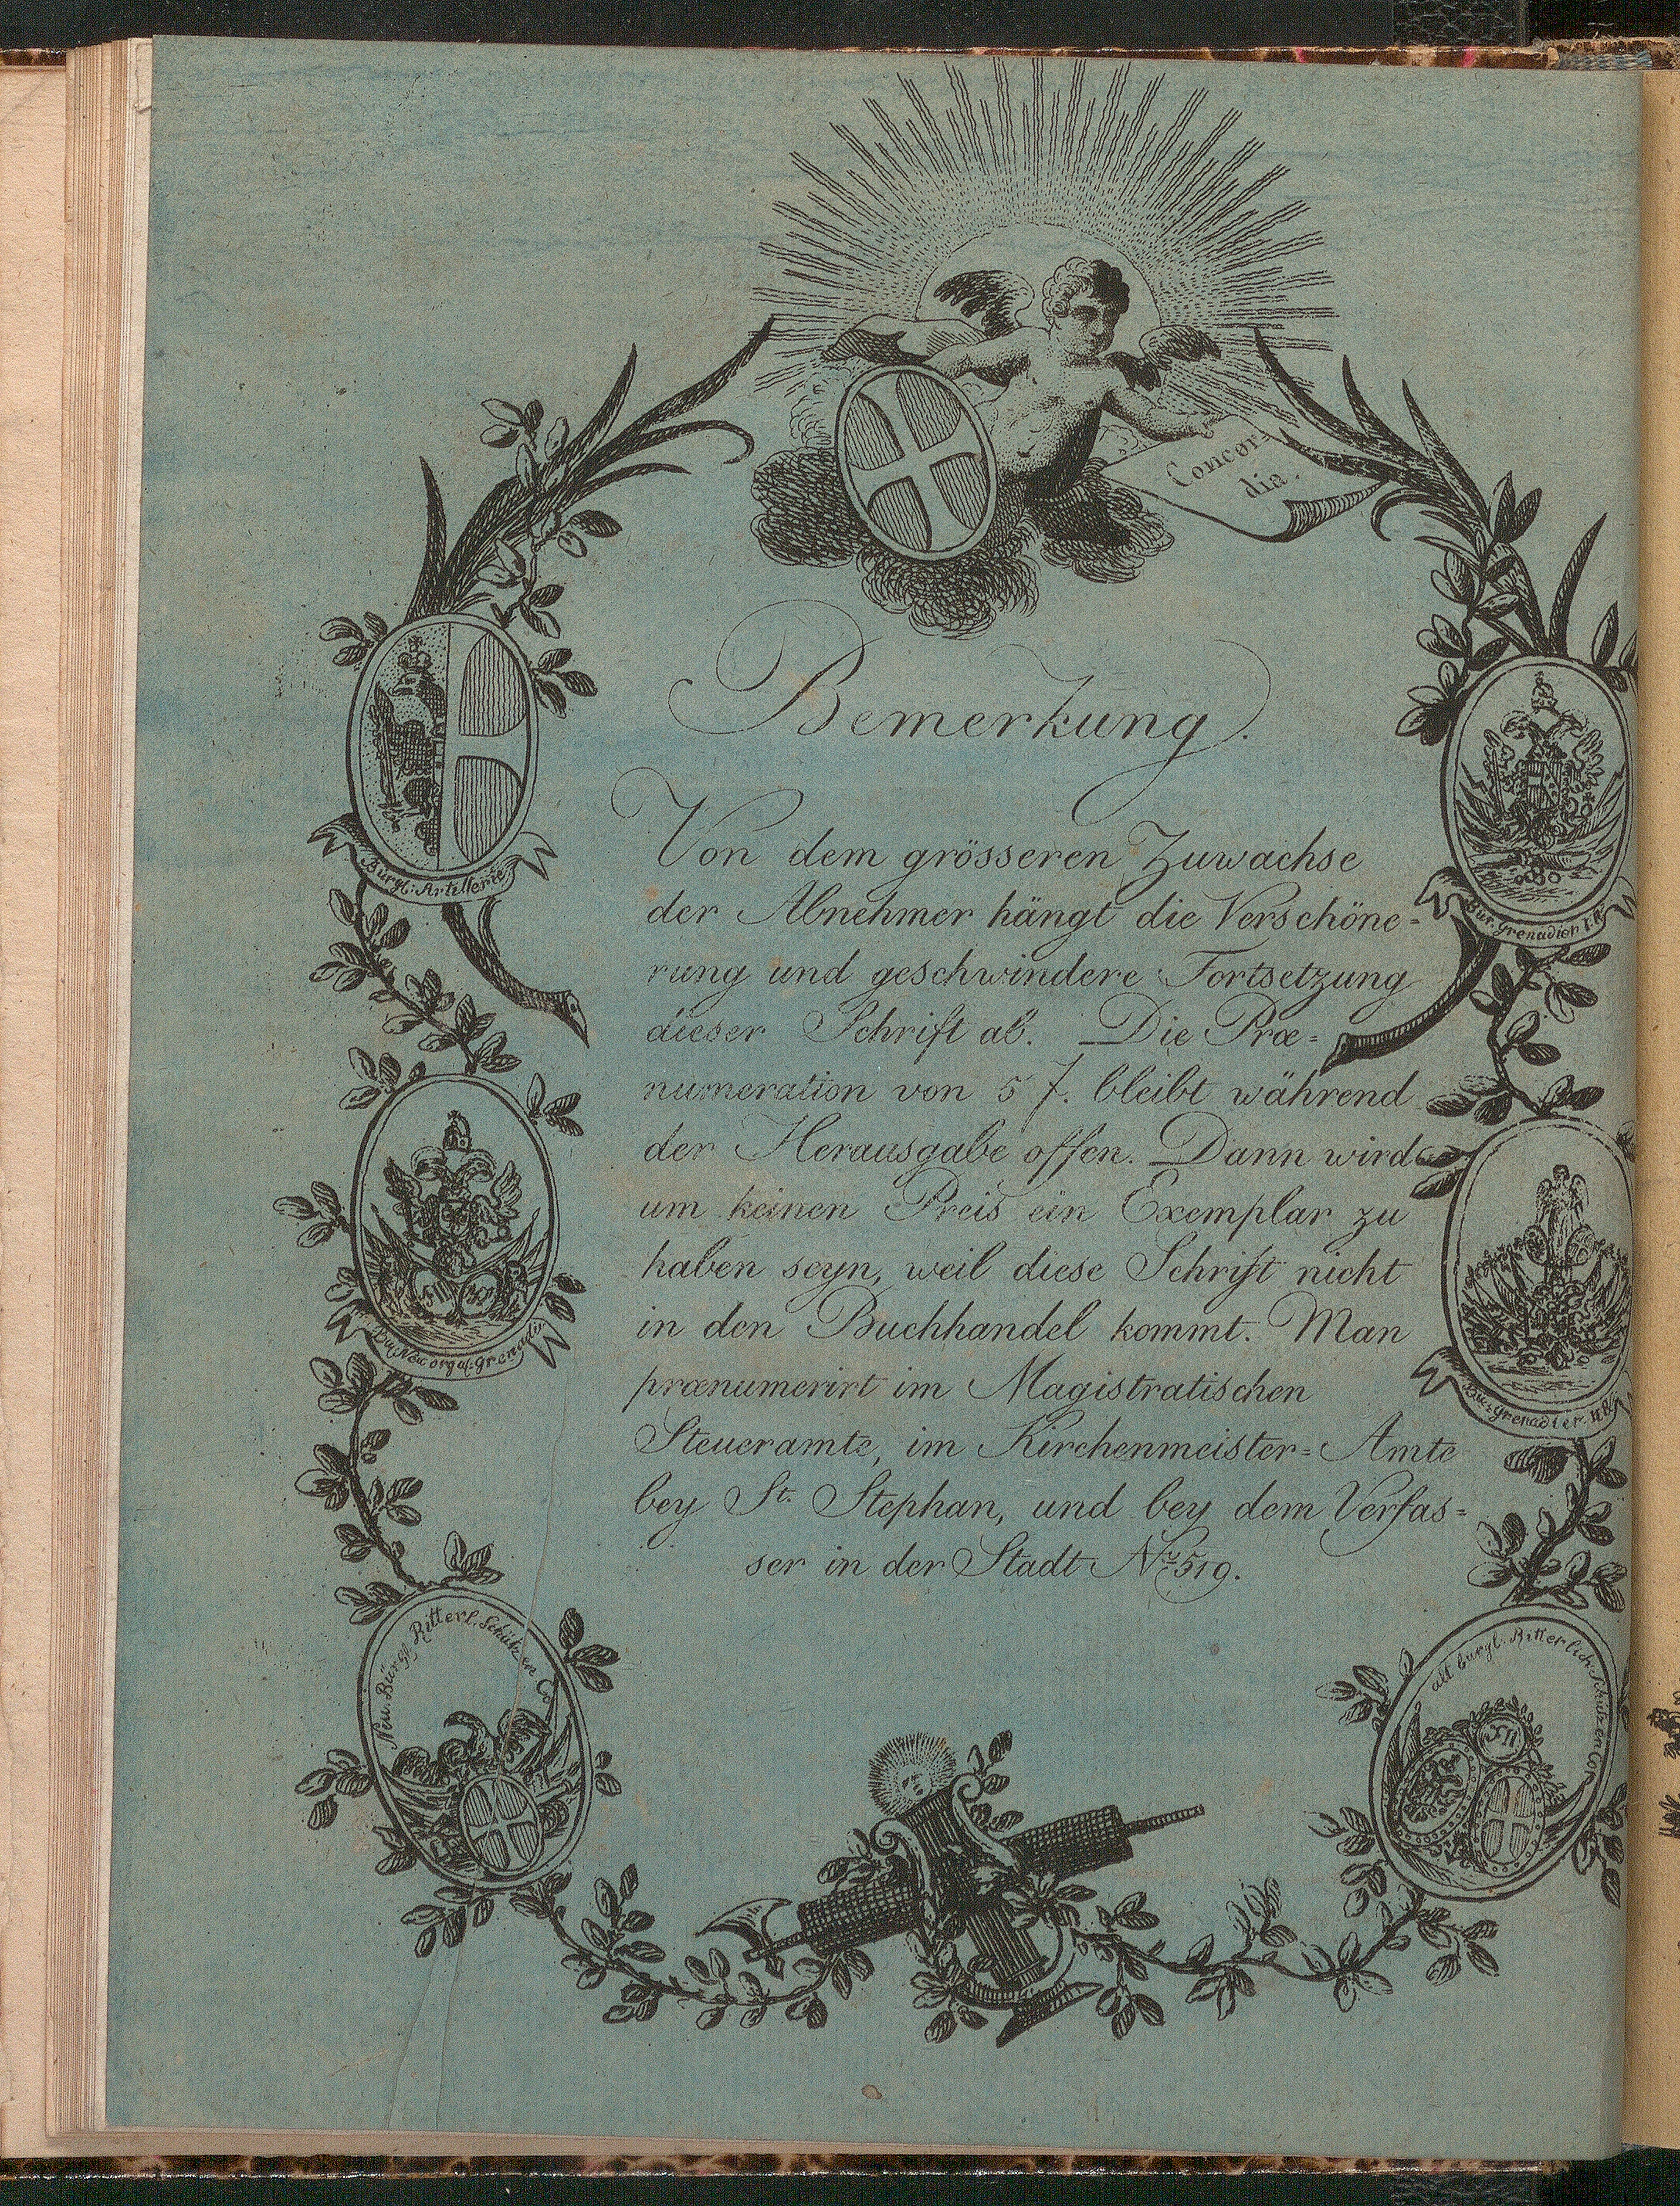 Concor-
dia.
Bemerkung.
Von dem grösseren Zuwachse
der Abnehmer hängt die Verschöne=
rung und geschwindere Fortsetzung
dieser Schrift ab. Die Præ=
numeration von 5 f. bleibt während
der Herausgabe offen. Dann wird
um keinen Preis ein Exemplar zu
haben seyn, weil diese Schrift nicht
in den Buchhandel kommt. Man
prænumerirt im Magistratischen
Steueramte, im Kirchenmeister=Amte
bey St. Stephan, und bey dem Verfas=
ser in der Stadt Nr. 519.
Bürgl: Artillerie
Bür. Grenadier
Neu orga: Grenadir
Bür: Grenadier.
Neu. Bürgl. Ritterl. Schützen Co
alt bürgl. Ritterlich. Schützen Cor